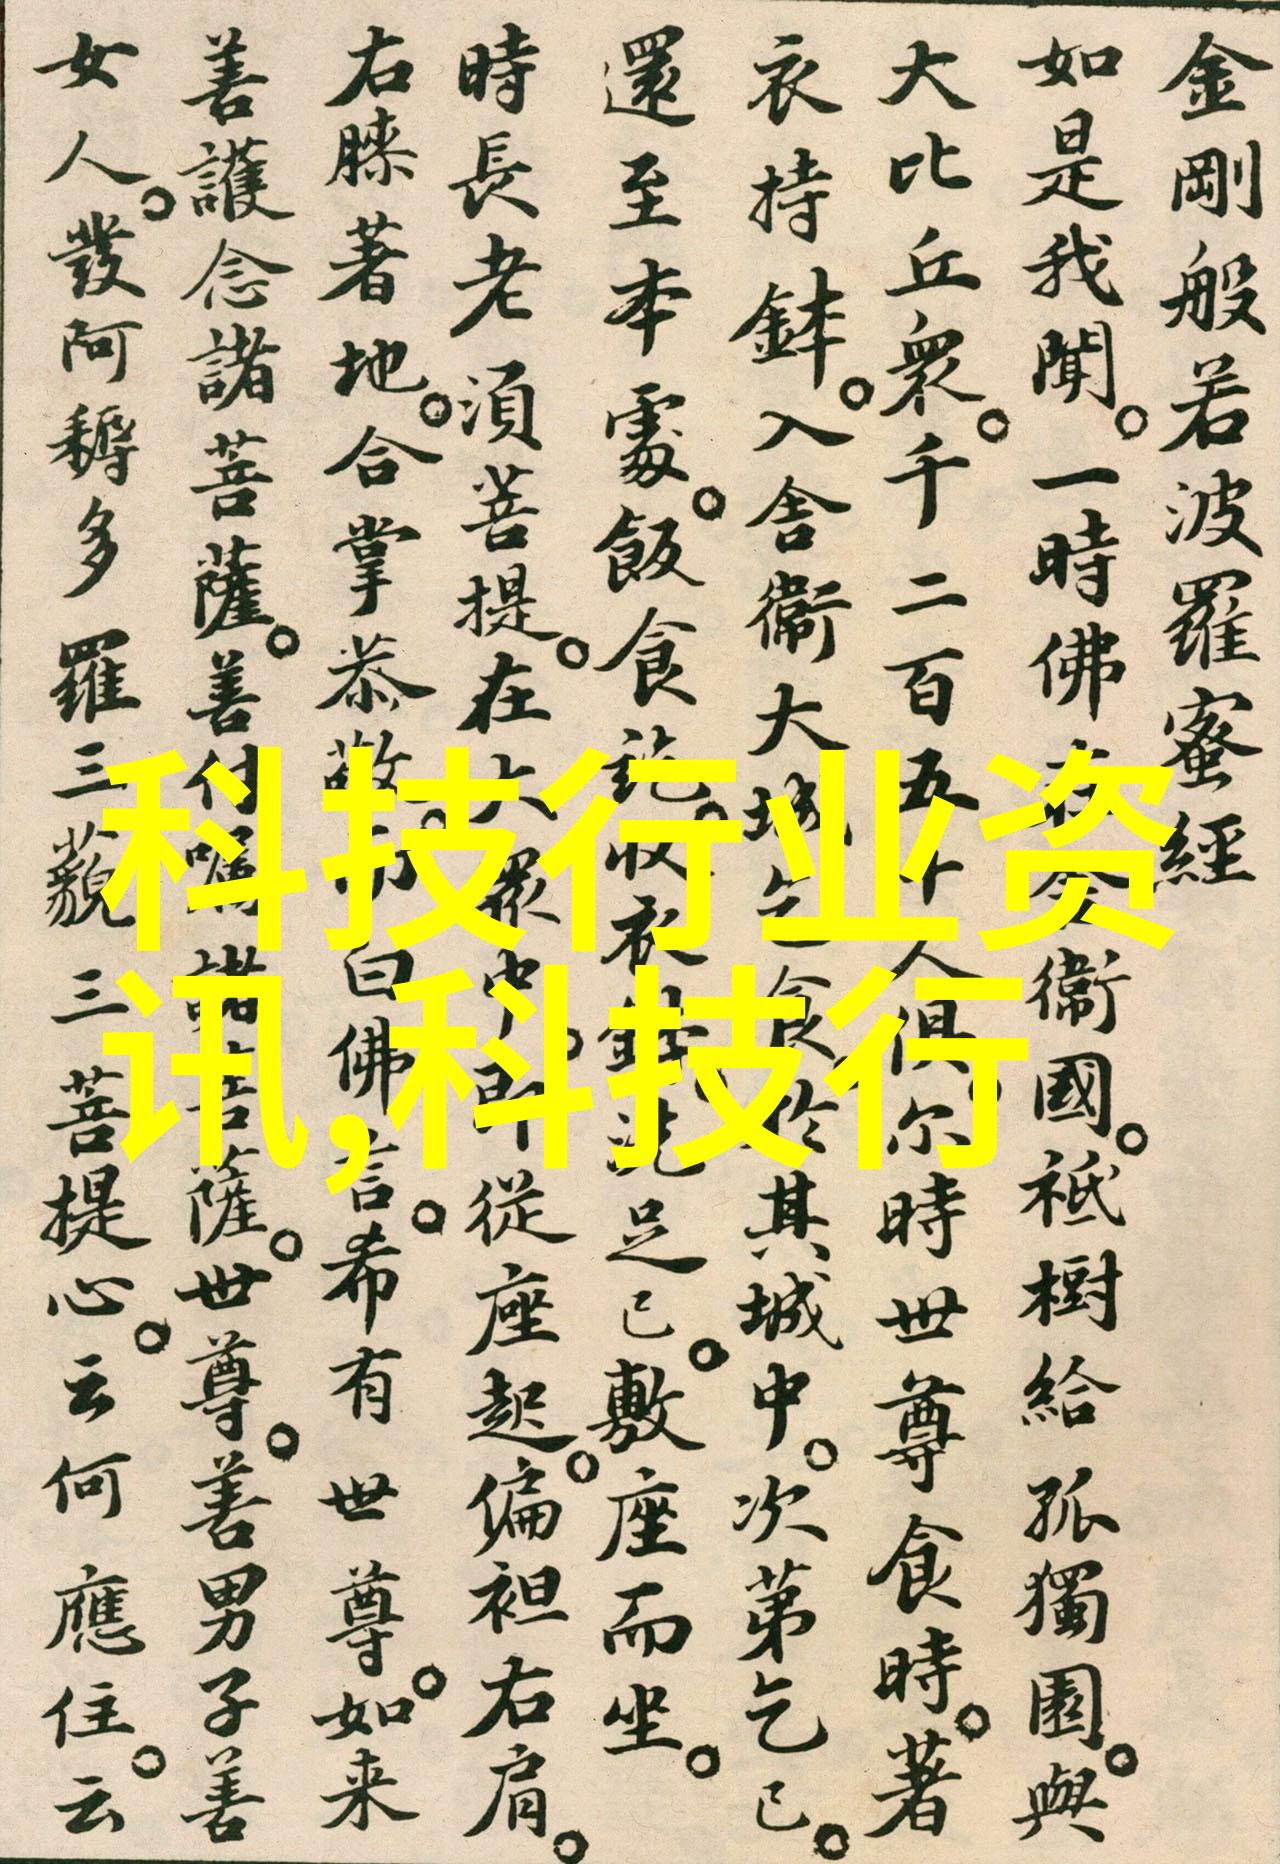 金剛般若波羅蜜經
如是我聞。一時佛在舍衞國。祇樹給孤獨園。與
大比丘衆。千二百五十人俱。尔時世尊食時。著
衣持鉢。入舍衞大城乞食於其城中。次第乞已。
還至本處。飯食訖。收衣鉢。洗足已。敷座而坐。
時長老須菩提。在大衆中。即從座起。偏袒右肩。
右膝著地。合掌恭敬。而白佛言。希有世尊。如来
善護念諸菩薩。善付囑諸菩薩。世尊。善男子善
女人。發阿耨多羅三藐三菩提心。云何應住。云
科技行业资
讯,科技行